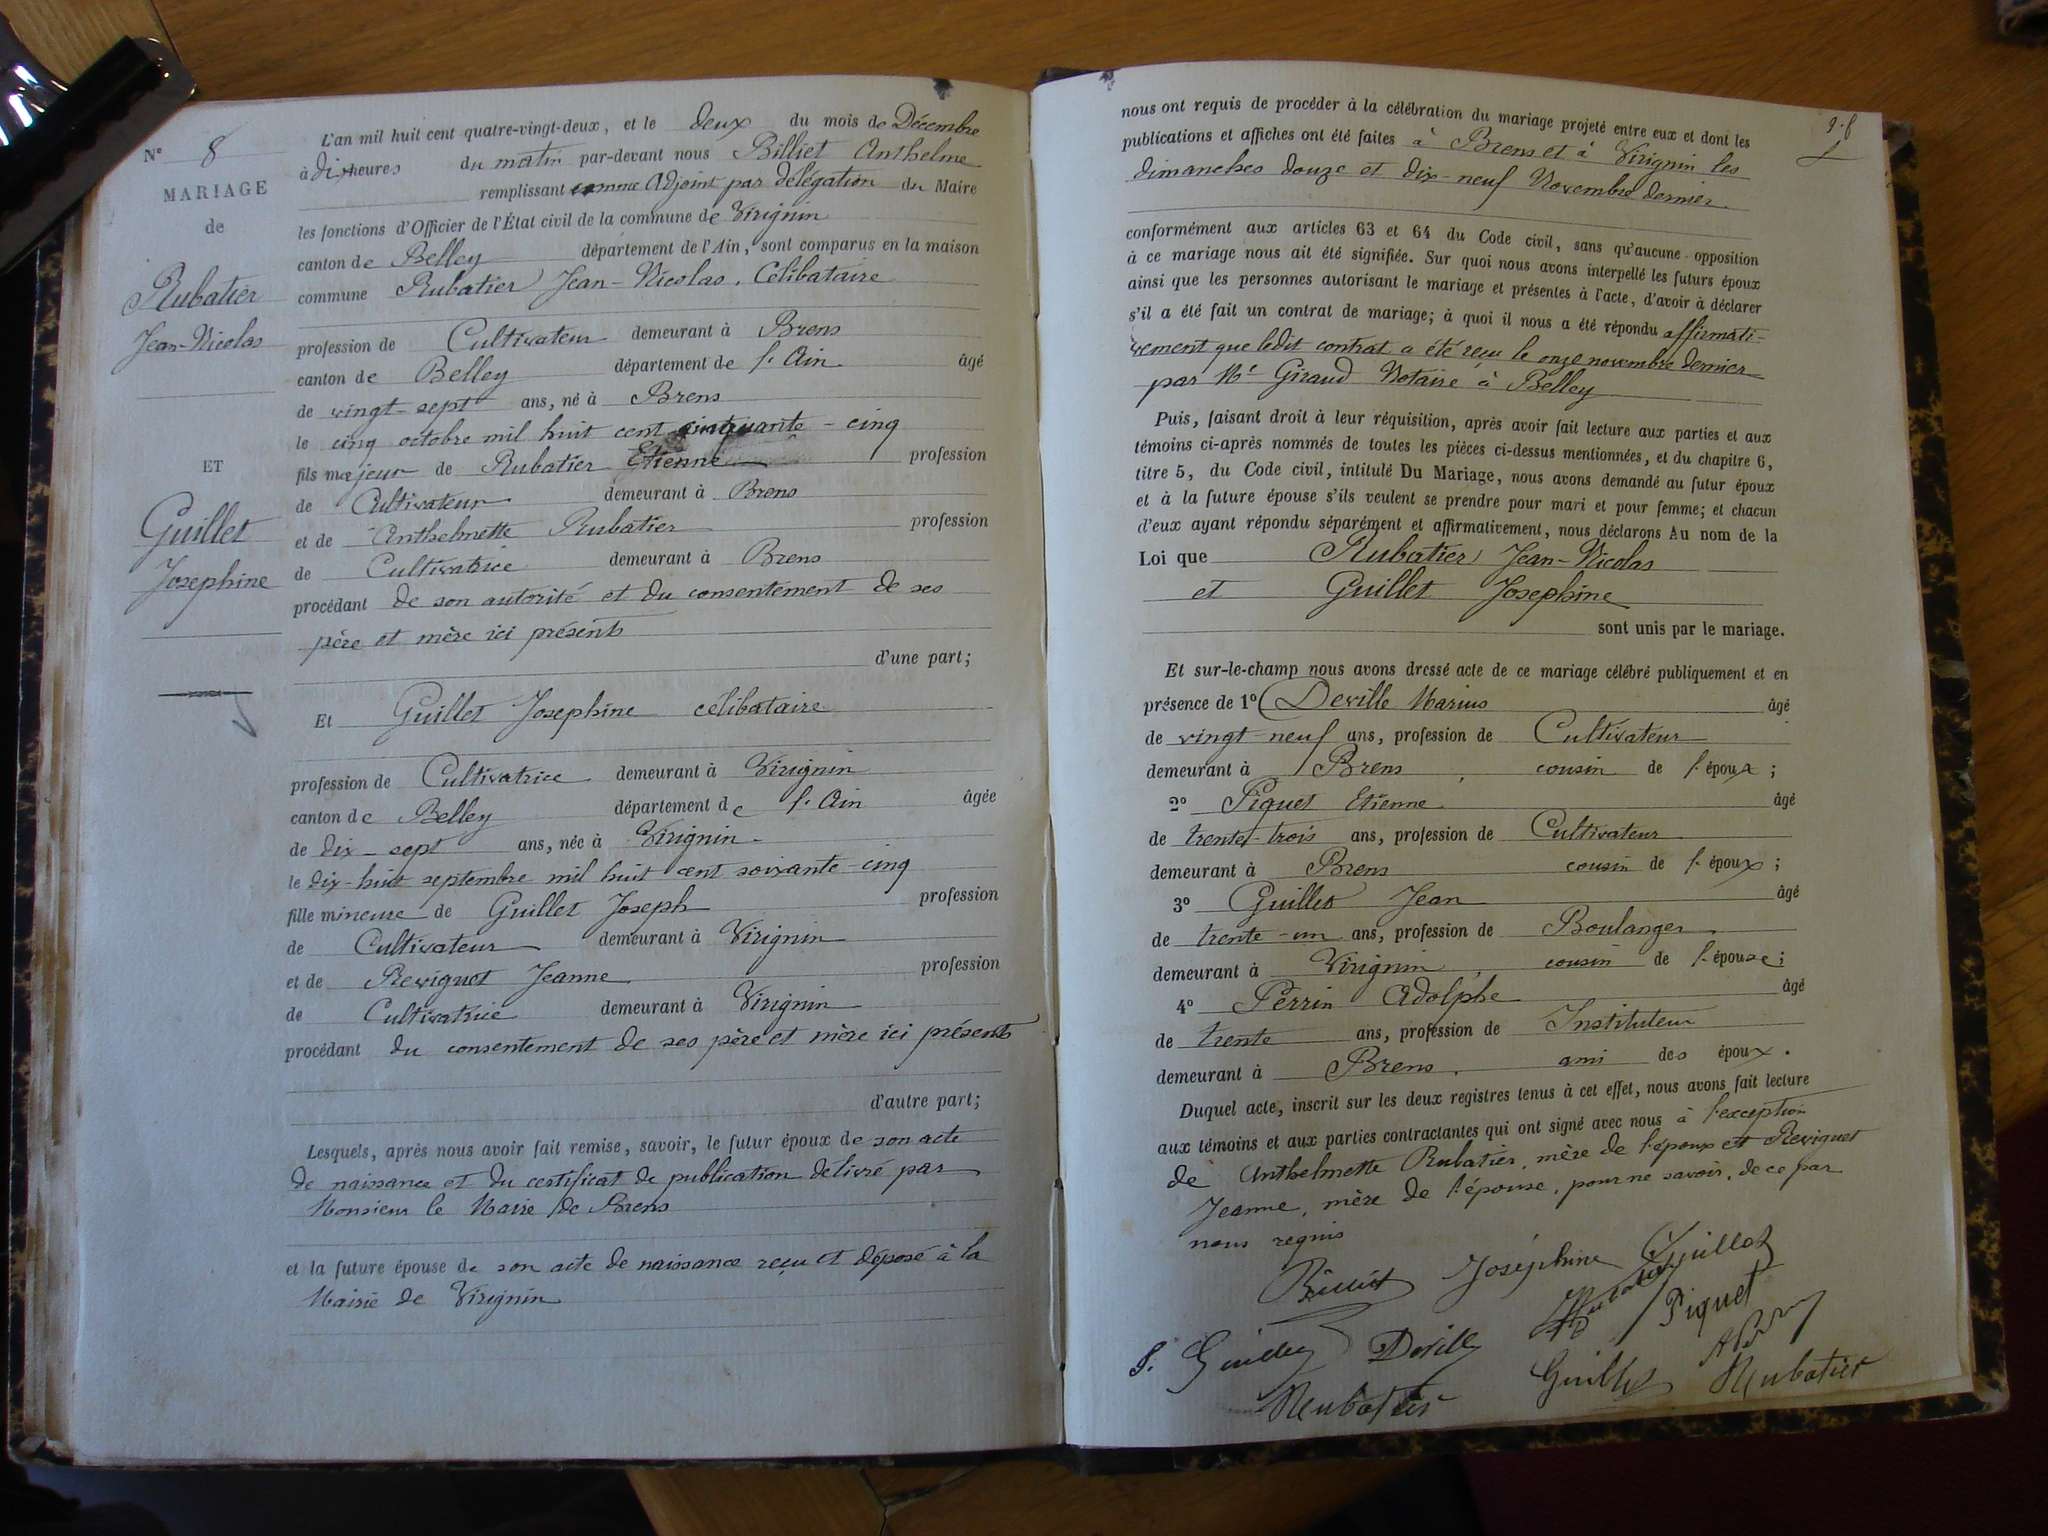 N° 8
MARIAGE
de
Rubatier
Jean-Nicolas
ET
Guillet
Josephine
L'an mil huit cent quatre-vingt-deux, et le deux du mois de Décembre
à dix heures du matin par-devant nous Billiet Anthelme
remplissant comme Adjoint par délégation du Maire
les fonctions d'Officier de l'État civil de la commune de Virignin
canton de Belley département de l'Ain, sont comparus en la maison
commune Rubatier Jean-Nicolas, Célibataire
profession de Cultivateur demeurant à Brens
canton de Belley département de l'Ain âgé
de vingt-sept ans, né à Brens
le cinq octobre mil huit cent cinquante-cinq
fils majeur de Rubatier Etienne profession
de Cultivateur demeurant à Brens
et de Anthelmette Rubatier profession
de Cultivatrice demeurant à Brens
procédant de son autorité et du consentement de ses
père et mère ici présents
d'une part;
Et Guillet Josephine célibataire
profession de Cultivatrice demeurant à Virignin
canton de Belley département de l'Ain âgée
de dix-sept ans, née à Virignin
le dix-huit septembre mil huit cent soixante-cinq
fille mineure de Guillet Joseph profession
de Cultivateur demeurant à Virignin
et de Reviguet Jeanne profession
de Cultivatrice demeurant à Virignin
procédant du consentement de ses père et mère ici présents
d'autre part;
Lesquels, après nous avoir fait remise, savoir, le futur époux de son acte
de naissance et du certificat de publication délivré par
Monsieur le Maire de Brens
et la future épouse de son acte de naissance reçu et déposé à la
Mairie de Virignin
nous ont requis de procéder à la célébration du mariage projeté entre eux et dont les
publications et affiches ont été faites à Brens et à Virignin les
dimanches douze et dix-neuf Novembre dernier.
conformément aux articles 63 et 64 du Code civil, sans qu'aucune opposition
à ce mariage nous ait été signifiée. Sur quoi nous avons interpellé les futurs époux
ainsi que les personnes autorisant le mariage et présentes à l'acte, d'avoir à déclarer
s'il a été fait un contrat de mariage; à quoi il nous a été répondu affirmati-
vement que ledit contrat a été reçu le onze novembre dernier
par Me Giraud Notaire à Belley
Puis, faisant droit à leur réquisition, après avoir fait lecture aux parties et aux
témoins ci-après nommés de toutes les pièces ci-dessus mentionnées, et du chapitre 6,
titre 5, du Code civil, intitulé Du Mariage, nous avons demandé au futur époux
et à la future épouse s'ils veulent se prendre pour mari et pour femme; et chacun
d'eux ayant répondu séparément et affirmativement, nous déclarons Au nom de la
Loi que Rubatier Jean-Nicolas
et Guillet Josephine
sont unis par le mariage.
Et sur-le-champ nous avons dressé acte de ce mariage célébré publiquement et en
présence de 1° Deville Marius âgé
de vingt-neuf ans, profession de Cultivateur
demeurant à Brens, cousin de l'époux;
2° Piquet Etienne âgé
de trente-trois ans, profession de Cultivateur
demeurant à Brens cousin de l'époux;
3° Guillet Jean âgé
de trente-un ans, profession de Boulanger
demeurant à Virignin, cousin de l'épouse;
4° Perrin Adolphe âgé
de trente ans, profession de Instituteur
demeurant à Brens, ami des époux.
Duquel acte, inscrit sur les deux registres tenus à cet effet, nous avons fait lecture
aux témoins et aux parties contractantes qui ont signé avec nous à l'exception
de Anthelmette Rubatier, mère de l'époux et Reviguet
Jeanne, mère de l'épouse, pour ne savoir, de ce par
nous requis
Billiet Joséphine Guillet
Piquet
J. Guillet Deville
Guillet Rubatier
Rubatier